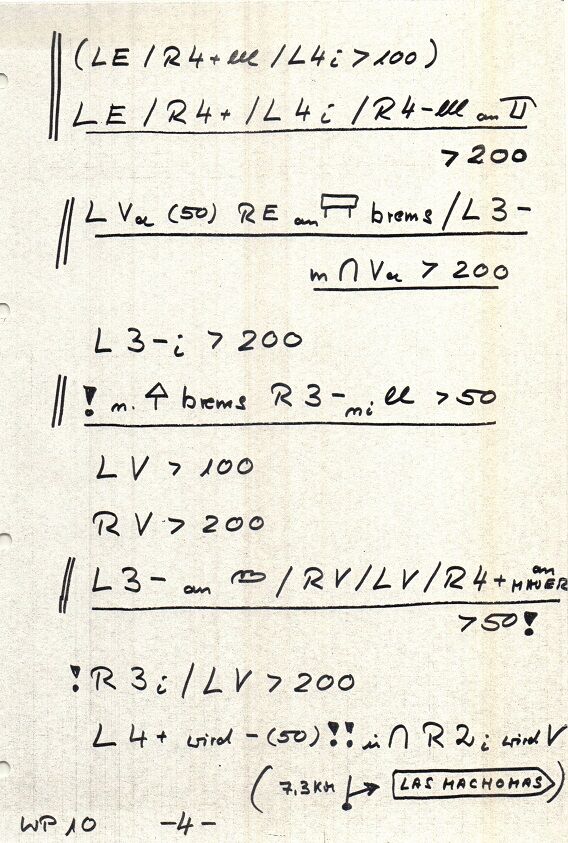 (LE/R4+ lll /L4i>100)
LE/R4+/L4i/R4- lll an
>200
LVα (50) RE an brems/L3-
m ∩ Vα > 200
L 3-i > 200
! n. brems R 3- ni ll > 50
LV > 100
RV > 200
L3- an /RV/LV/R4+ an MAUER
>50!
! R3i/LV>200
L4+ wird -(50)!! in ∩ R2i wird V
(7,3KM LAS MACHOMAS)
WP 10 -4-